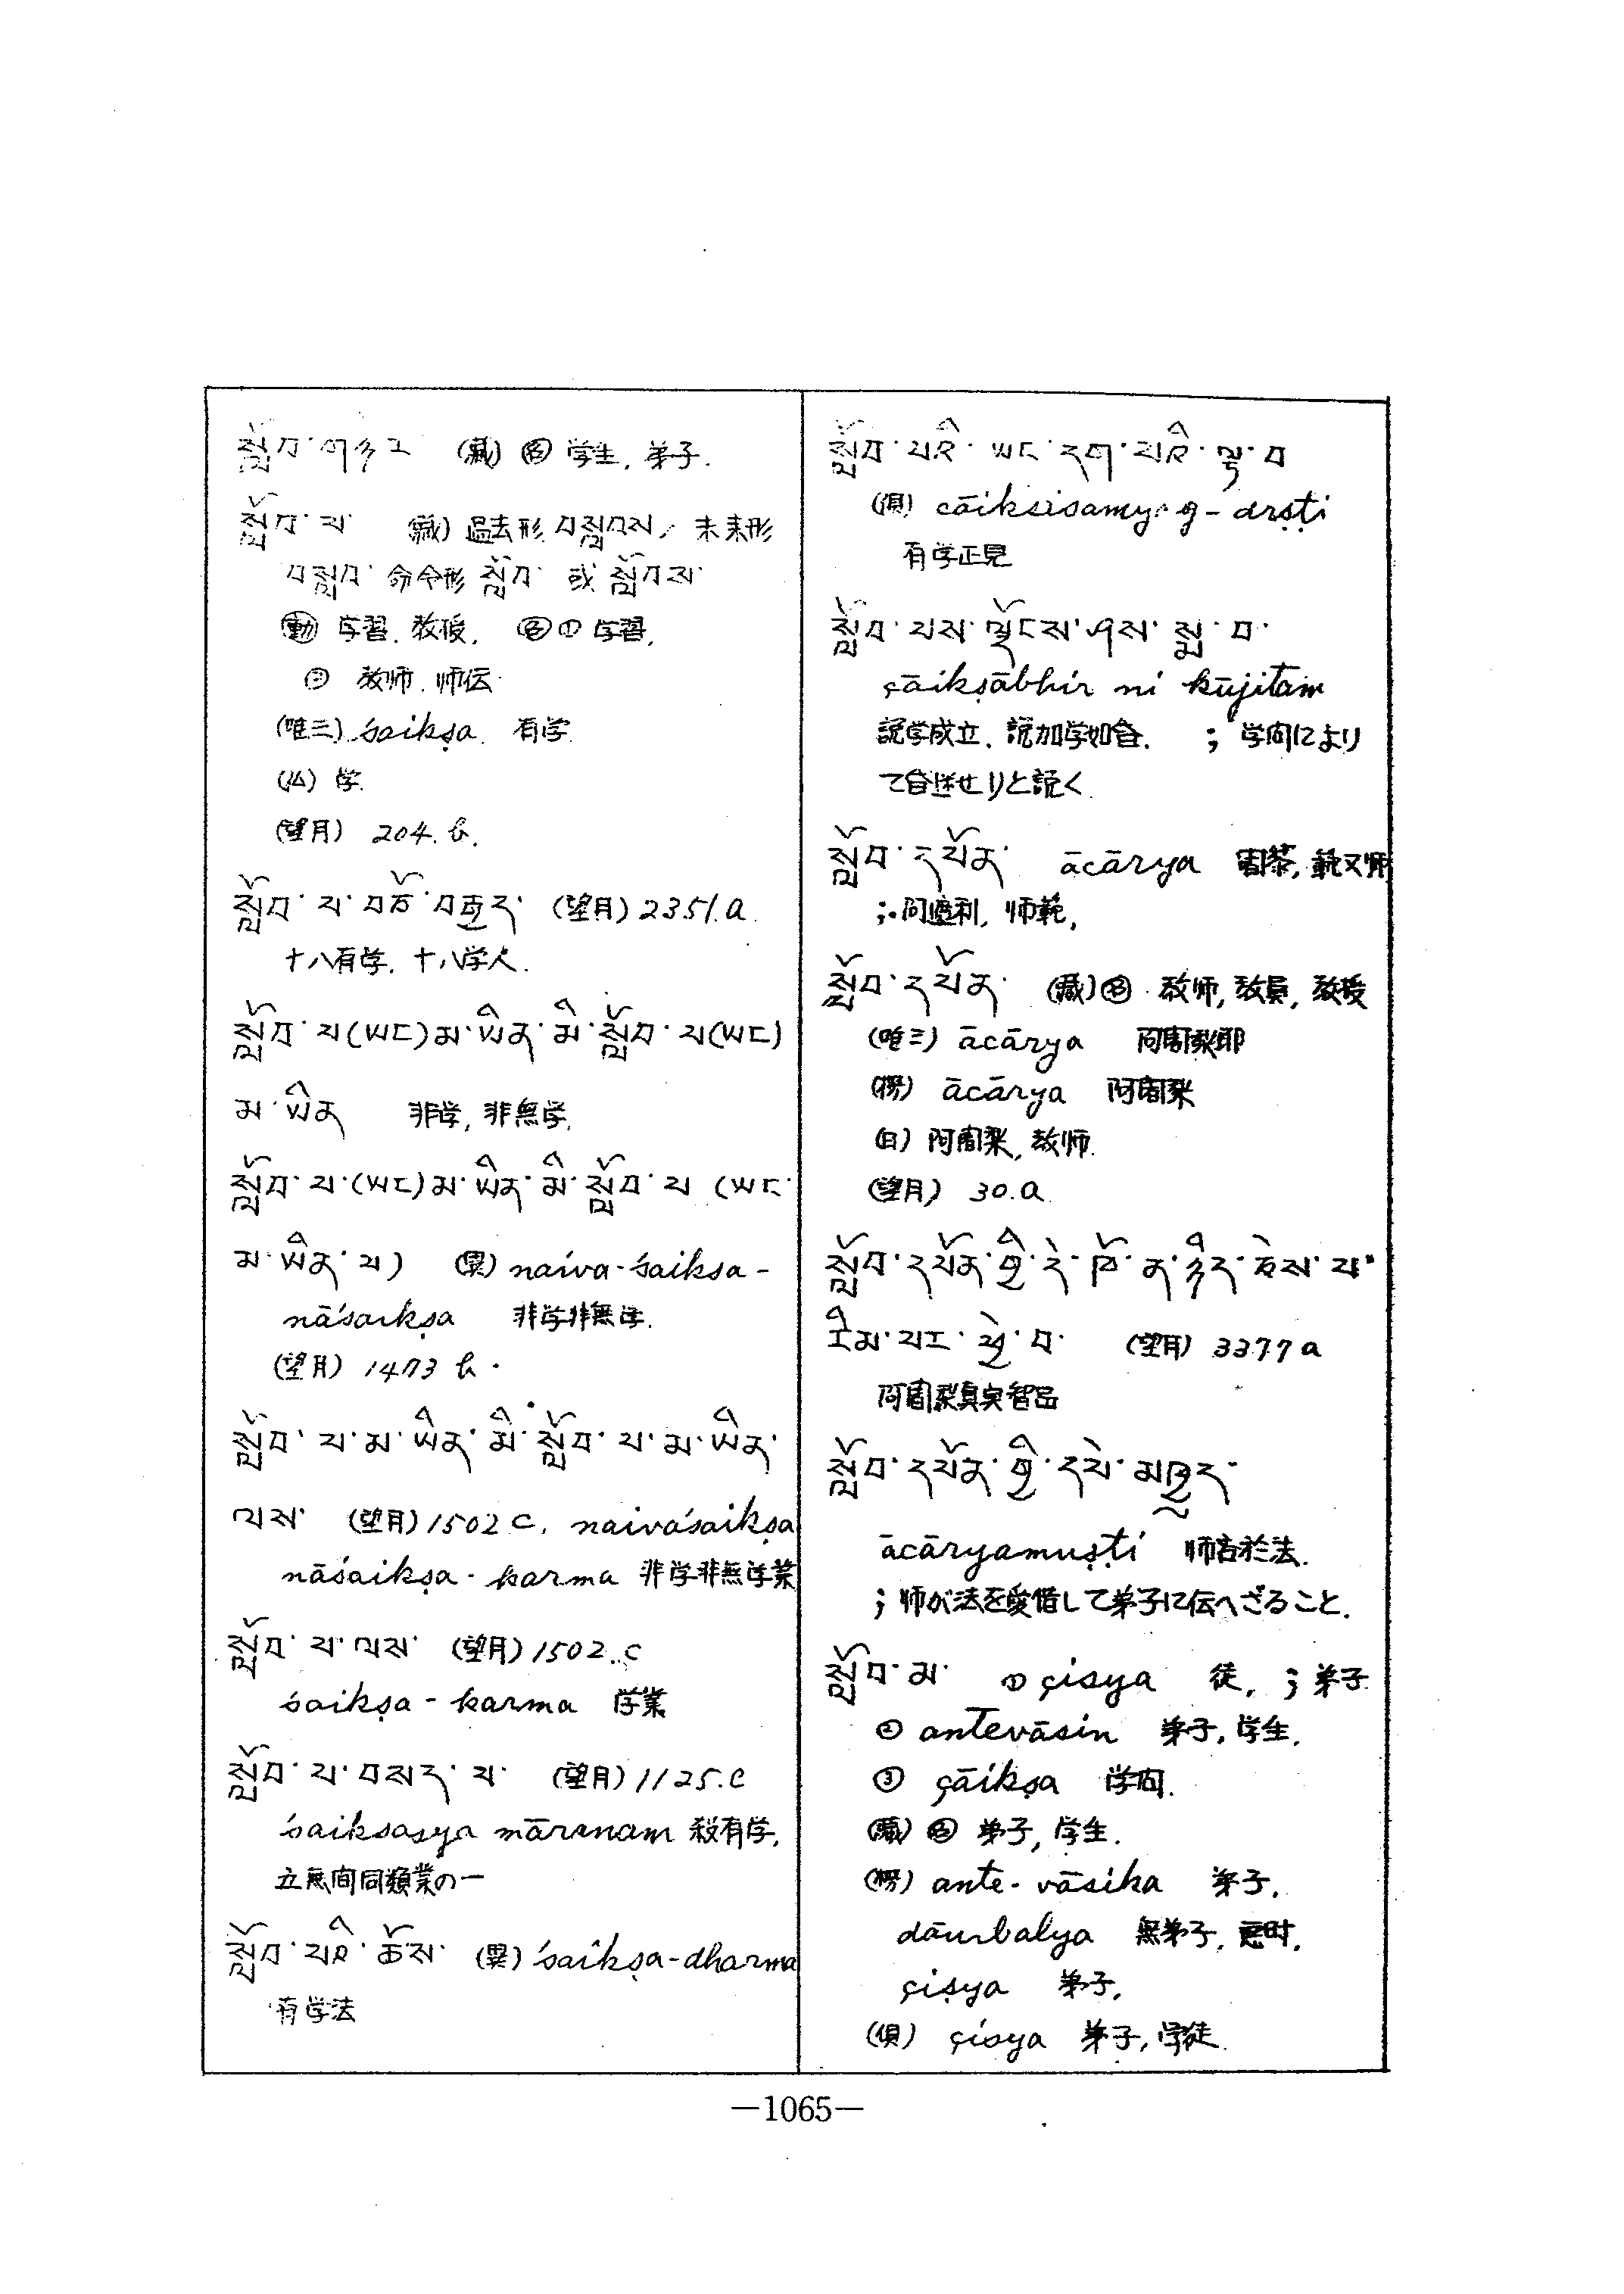 སློབ་གཉེར (藏) 名 学生, 弟子.
སློབ་པ་ (藏) 過去形 བསླབས/ 未来形
བསླབ་ 命令形 སློབ་ 或 སློབས་
動 学習. 教授. 名① 学習,
② 教师. 师伝
(唯三) śaikṣa. 有学
(仏) 学.
(望月) 204. b.
སློབ་པ་བཅོ་བརྒྱད་ (望月) 2351. a.
十八有学. 十八学人.
སློབ་པ་(ཡང)མ་ཡིན་མི་སློབ་པ་(ཡང)
མ་ཡིན 非学, 非無学.
སློབ་པ་(ཡང)མ་ཡིན་མི་སློབ་པ (ཡང་
མ་ཡིན་པ) (異) naiva-śaiksa-
nāśaikṣa 非学非無学.
(望月) 1473 b.
སློབ་པ་མ་ཡིན་མི་སློབ་པ་མ་ཡིན་
ལས་ (望月) 1502 c, naivaśaikṣa
nāśaikṣa-karma 非学非無学業
སློབ་པ་ལས་ (望月) 1502. c
śaikṣa-karma 学業
སློབ་པ་བསད་པ་ (望月) 1125. c
śaiksasya māranam 殺有学,
五無間同類業の一
སློབ་པའི་ཆོས་ (異) śaikṣa-dharma
有学法
སློབ་པའི་ཡང་དག་པའི་ལྟ་བ
(倶) çāiksisamyag-drṣṭi
有学正見
སློབ་པས་ལྡོངས་ཤས་སྨྲ་བ་
çāikṣābhir ni kūjitam
説学成立. ; 学向により
て せりと説く.
སློབ་དཔོན་ ācārya 闍梨,
; 阿遮利, 师範,
སློབ་དཔོན་ (藏) 名 教师, 教員, 教授
(唯三) ācārya 阿闍梨耶
(楞) ācārya 阿闍梨
(目) 阿闍梨, 教师.
(望月) 30. a.
སློབ་དཔོན་གྱི་དེ་ཁོ་ན་ཉིད་ཤེས་པ་
རིམ་པར་ཕྱེ་བ་ (望月) 3377 a
阿闍梨真実智品
སློབ་དཔོན་གྱི་དཔེ་མཁྱུད་
ācāryamuṣṭi 师吝於法.
; 师が法を愛惜して弟子に伝へざること.
སློབ་མ་ ① çisya 徒, ; 弟子
② antevāsin 弟子, 学生.
③ çāikṣa 学向.
(藏) 名 弟子, 学生.
(楞) ante-vāsika 弟子,
dāurbalya 無弟子,
çiṣya 弟子,
(倶) çisya 弟子, 学徒.
—1065—